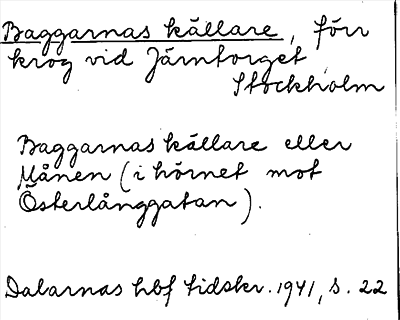 Baggarnas källare, förr
krog vid Järntorget
Stockholm
Baggarnas källare eller
Månen (i hörnet mot
Österlånggatan).
Dalarnas hbf tidskr. 1941, s. 22